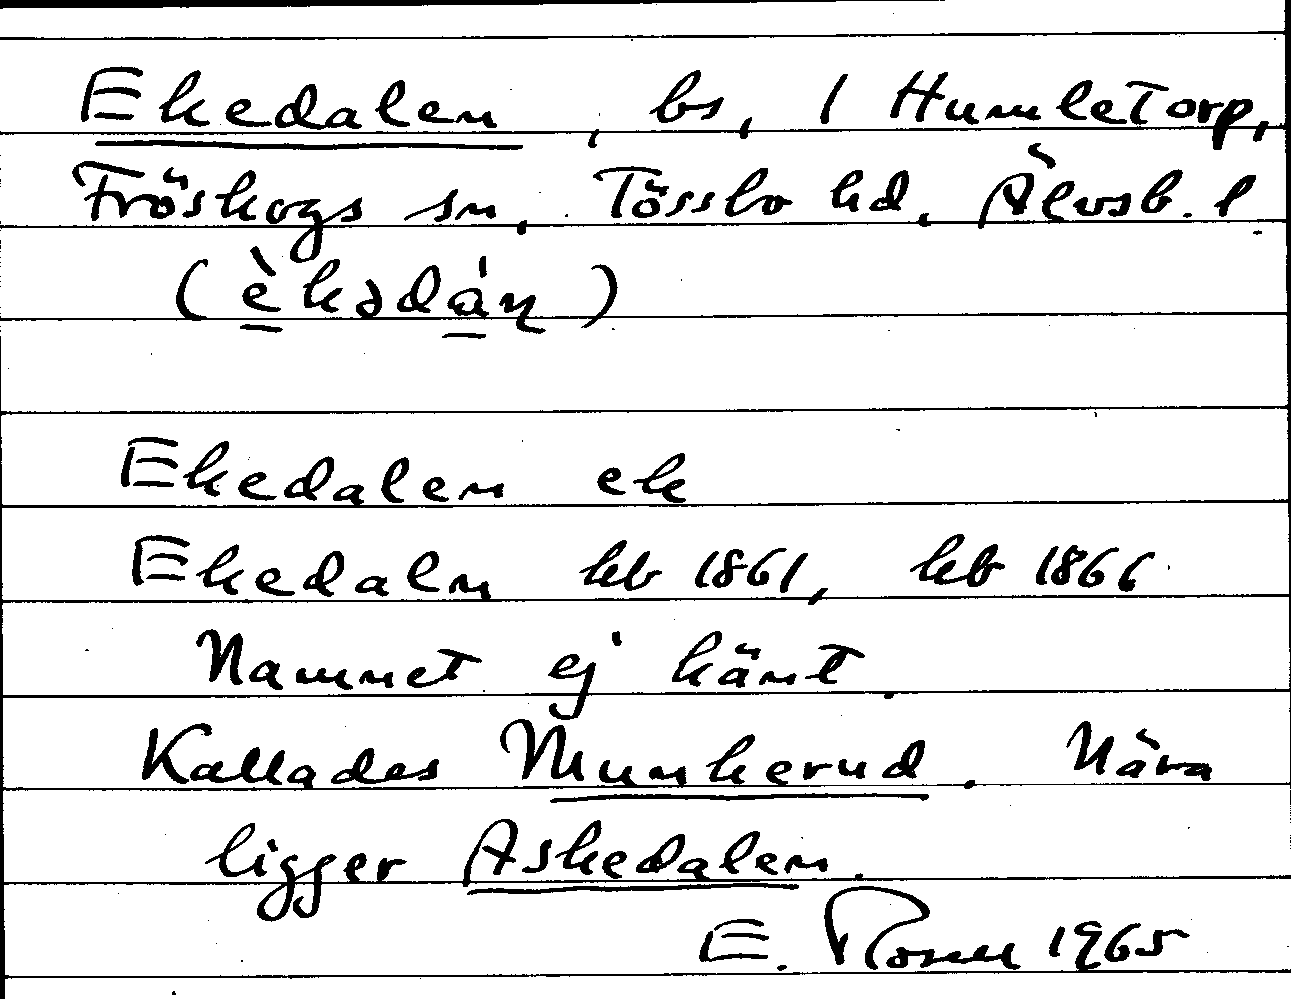 Ekedalen, bs, 1 Humletorp,
Fröskogs sn, Tössbo hd, Älvsb. l.
(èkədán)
Ekedalen ek
Ekedaln hb 1861, hb 1866
Namnet ej känt.
Kallades Munkerud. Nära
ligger Askedalen.
E. Rosell 1965